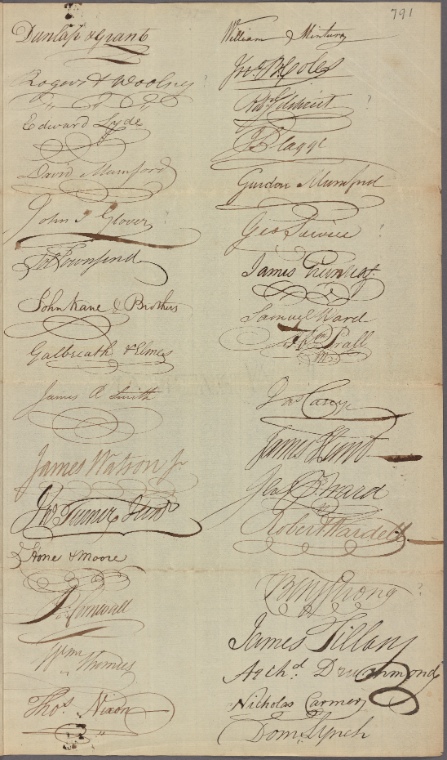 791
Dunlap & Grant
Rogers & Woolsey
Edward Lyde
David Mumford
John I Glover
Townsend
John Kane & Brothers
Galbreath & Elmes
James R Smith
James Watson Jr
Turner Junr
Stone & Moore
Cornwall
Wm Thomas
Thos Nixon
William & Minturn
Coles
Blagge
Gurdon Mumford
Geo Service
James
Samuel Ward
Prall
Jno Carey
James Hunt
Ward
Robert Wardell
Benj Strong
James Tillary
Archd. Drummond
Nicholas Carmer
Dom. Lynch